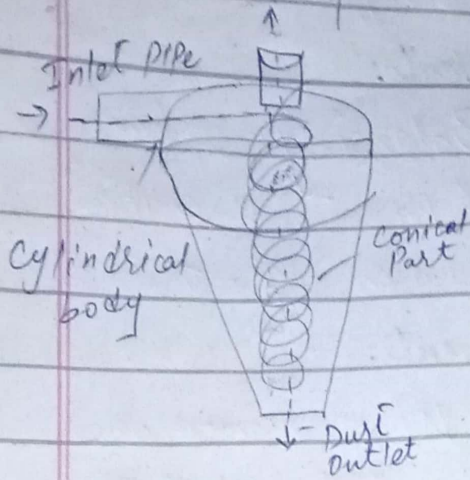 Inlet pipe
Cylindrical
body
Conical
Part
Dust
outlet